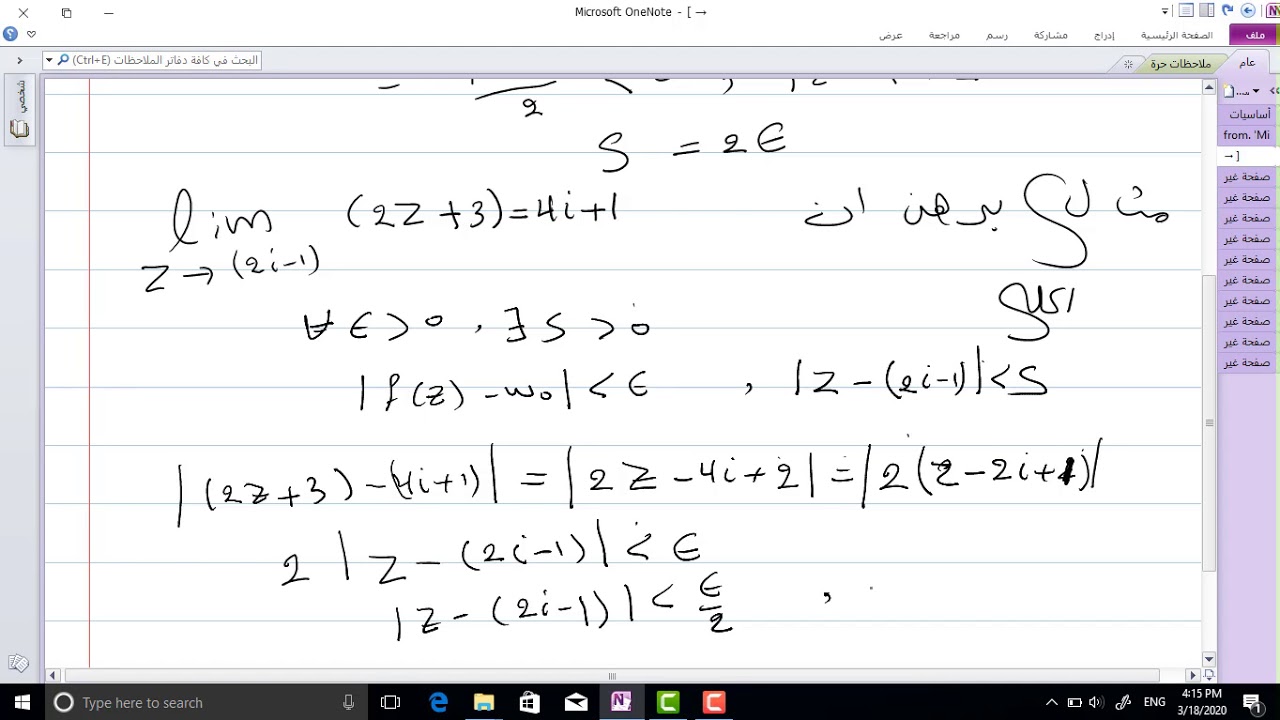 Microsoft OneNote - [ →
ملف
الصفحة الرئيسية
إدراج
مشاركة
رسم
مراجعة
عرض
البحث في كافة دفاتر الملاحظات (Ctrl+E)
ملاحظات حرة
عام
شخصي
أساسيات
from. 'Mi
→ ]
صفحة غير
صفحة غير
صفحة غير
صفحة غير
صفحة غير
صفحة غير
صفحة غير
صفحة غير
صفحة غير
صفحة غير
2
S = 2ϵ
مثال برهن ان lim (2Z+3)=4i+1
Z → (2i-1)
الحل
∀ ϵ > 0 , ∃ S > 0
|f(z) - w₀| < ϵ , |Z - (2i-1)| < S
|(2z+3) - (4i+1)| = |2Z - 4i + 2| = |2(z - 2i + 1)|
2 |Z - (2i-1)| < ϵ
|Z - (2i-1)| < ϵ/2 ,
Type here to search
ENG
4:15 PM
3/18/2020
1